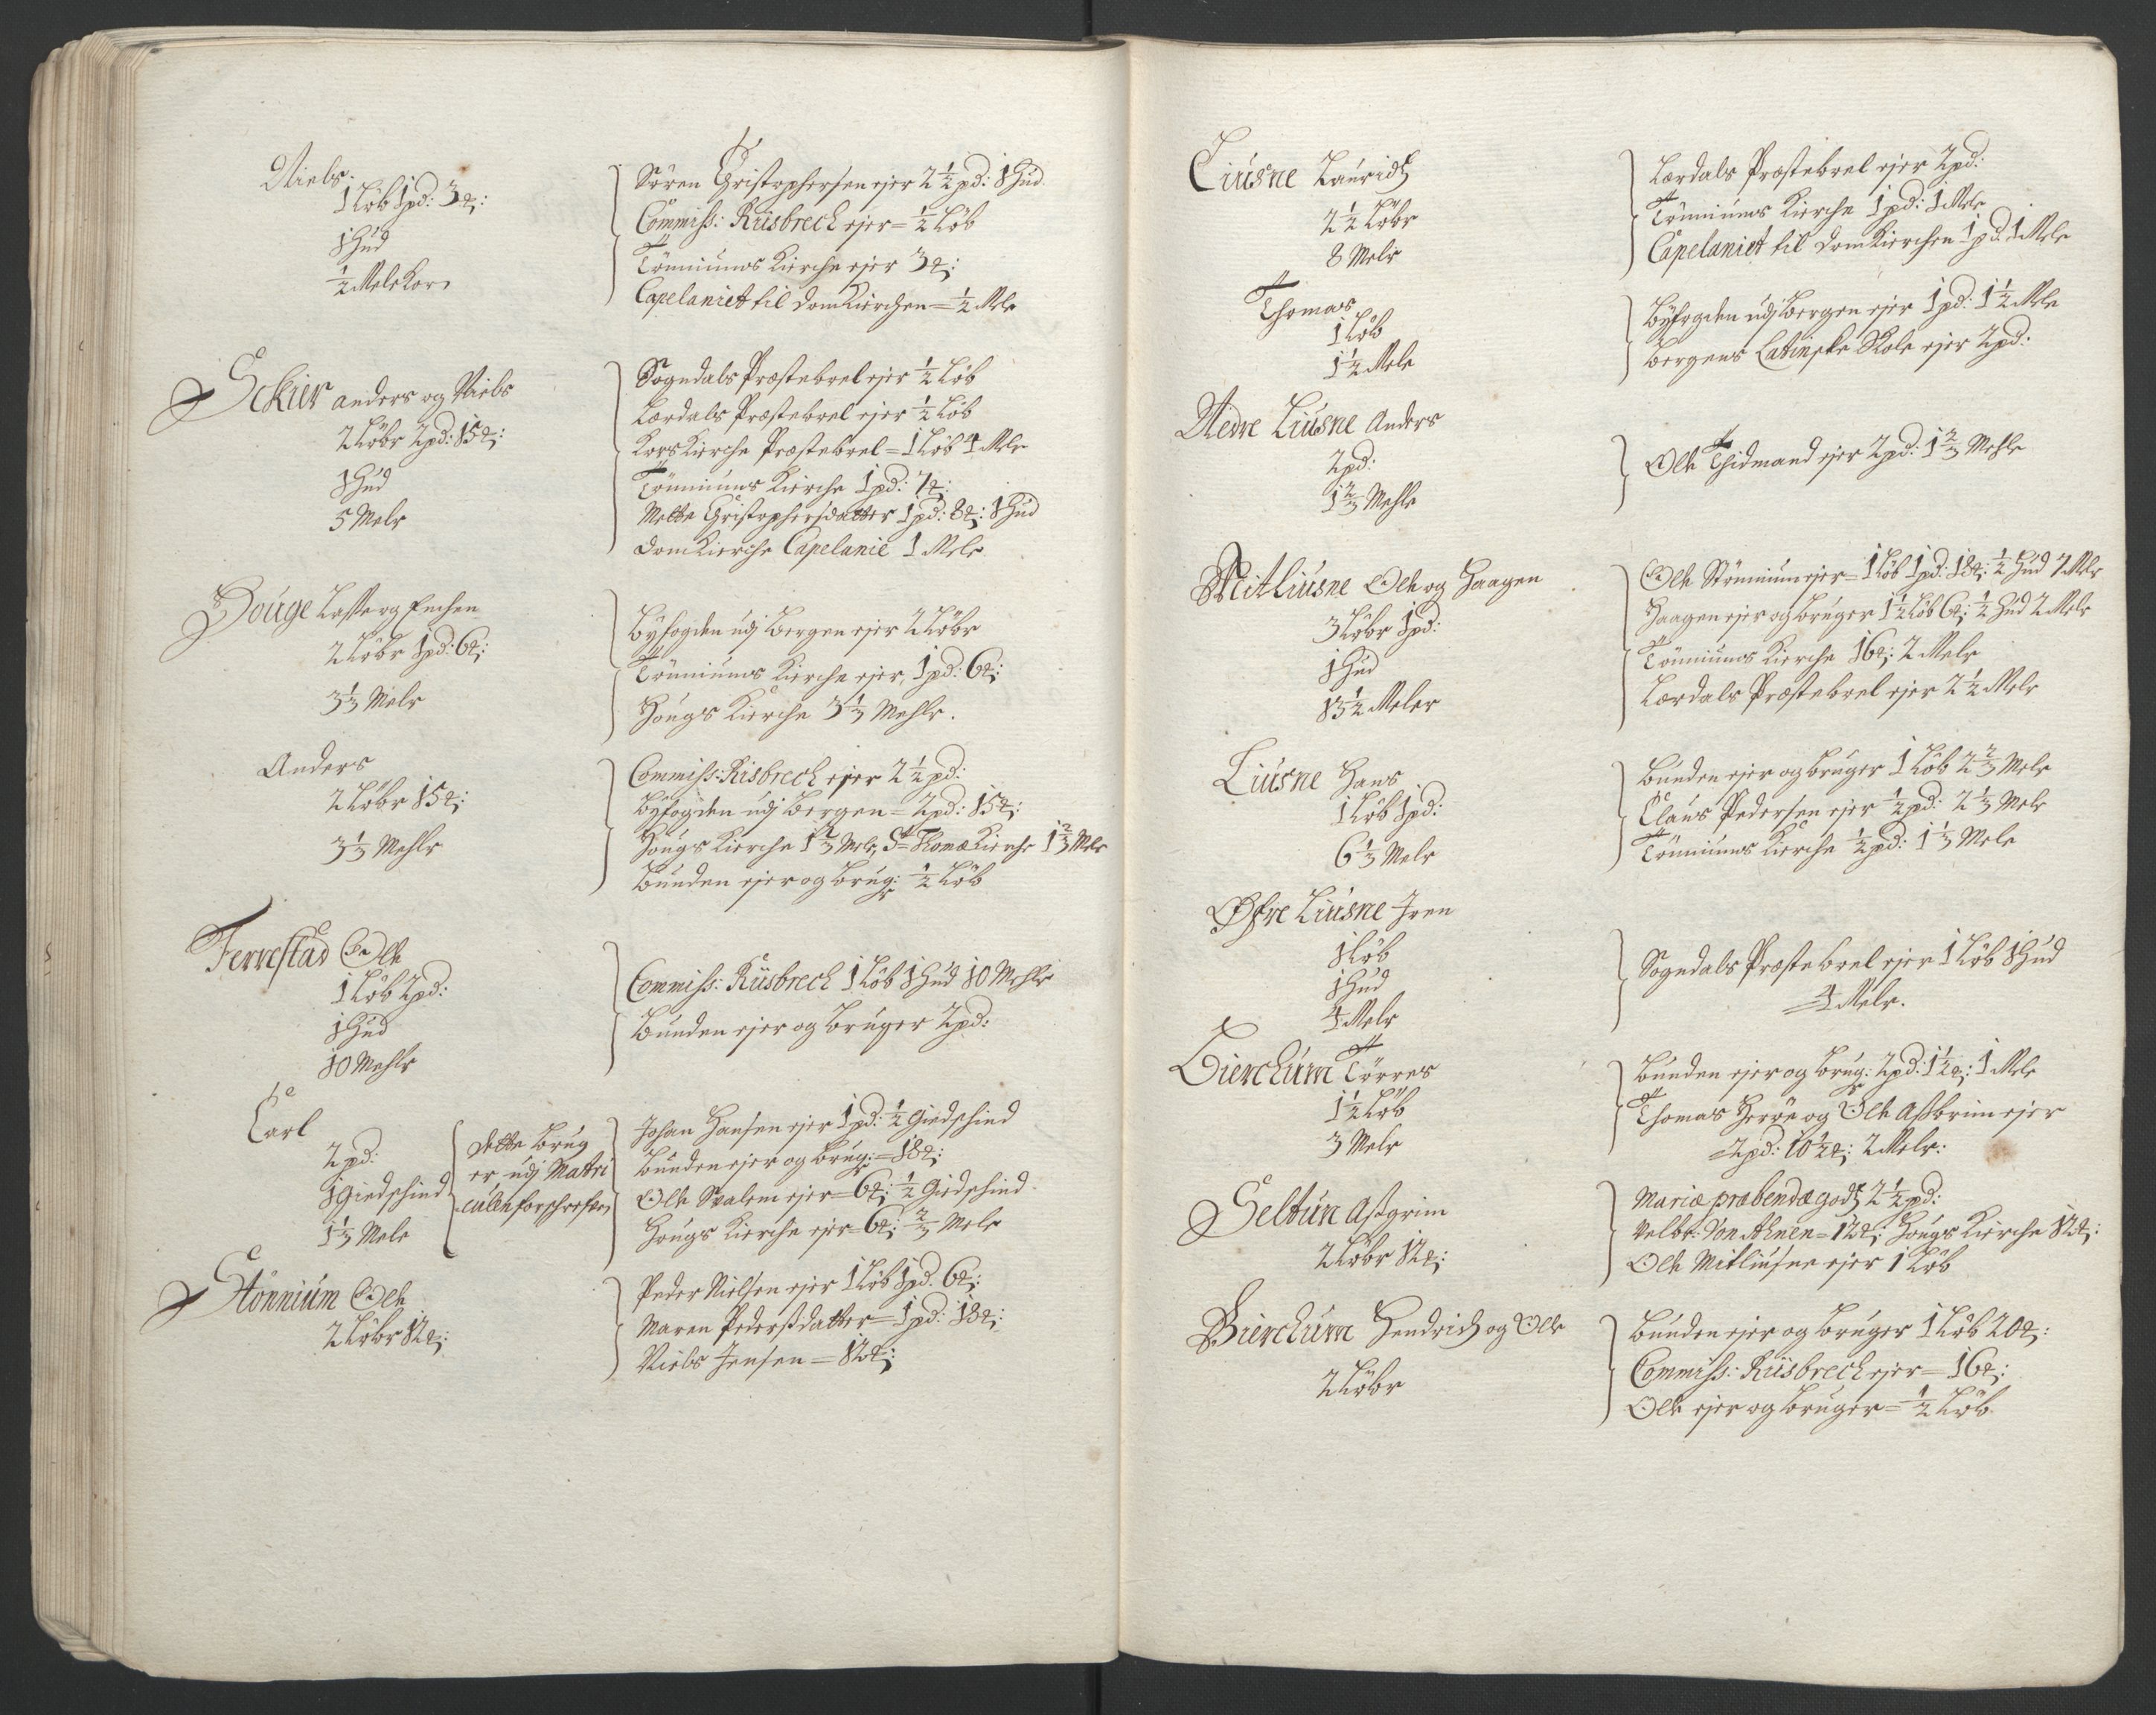 Niels
1 Løb 1 pd: 3 ℔:
1 Hud
½ Mele Korn
Søren Christophersen ejer 2½ pd: 1 Hud
Commiss: Riisbrech ejer = ½ Løb
Tönniums Kierche ejer 3 ℔:
Capelaniet til Domkierchen = ½ Mele
Schier Anders og Niels
2 Løbr 2 pd: 15 ℔:
1 Hud
5 Meler
Sogndals Præstebrel ejer ½ Løb
Lærdals Præstebrel ejer ½ Løb
Kors Kierche Præstebrel = 1 Løb 4 Mele
Tönniums Kierche 1 pd: 7 ℔:
Mette Christophersdatter 1 pd: 8 ℔: 1 Hud
Domkierche Capelanie 1 Mele
Houge Lasse og Enchen
2 Løbr 1 pd: 6 ℔:
3⅓ Meler
Byfogden udj Bergen ejer 2 Løbr
Tönniums Kierche ejer, 1 pd: 6 ℔:
Hougs Kierche 3⅓ Mehle.
Anders
2 Løbr 15 ℔:
3⅓ Mehle
Commiss: Risbrech ejer 2½ pd:
Byfogden udj Bergen = 2 pd: 15 ℔:
Hougs Kierche 1⅔ Mele, St Thomæ Kierche 1⅔ Mele
Bunden ejer og brug: ½ Løb
Ferrestad Ole
1 Løb 2 pd:
1 Hud
10 Mehle
Commiss: Riisbrech 1 Løb 1 Hud 10 Mehle
Bunden ejer og bruger 2 pd:
Carl
2 pd:
1 Giedschind
1⅓ Mele
dette brug
er udj Matri
culen forschrefven
Johan Hansen ejer 1 pd: ½ Giedschind
Bunden ejer og brug: = 18 ℔:
Ole Svalem ejer = 6 ℔: ½ Giedschind
Hougs Kierche ejer = 6 ℔: ⅔ Mele
Stönnium Ole
2 Løbr 12 ℔:
Peder Nielsen ejer 1 Løb 1 pd. 6 ℔:
Maren Pedersdatter = 1 pd: 18 ℔:
Niels Jensen = 12 ℔:
Liusne Lauridz
2½ Løbr
8 Meler
Lærdals Præstebrel ejer 2 pd:
Tönniums Kierche 1 pd: 1 Mele
Capelaniet til Domkierchen 1 pd. 1 Mele
Thomas
1 Løb
1½ Mele
Byfogden udj Bergen ejer 1 pd: 1½ Mele
Bergens Latinske Skole ejer 2 pd:
Nedre Liusne Anders
2 pd:
1⅔ Mehle
Ole Thidmand ejer 2 pd: 1⅔ Mehle
Mitliusne Ole og Haagen
3 Løbr 1 pd:
1 Hud
13½ Meler
Ole Stönnium ejer = 1 Løb 1 pd: 18 ℔: ½ Hud 7 Mele
Haagen ejer og bruger 1½ Løb 6 ℔: ½ Hud 2 Mele
Tönniums Kierche 16 ℔: 2 Mele
Lærdals Præstebrel ejer 2½ Mele
Liusne Hans
1 Løb 1 pd:
6⅓ Meler
Bunden ejer og bruger 1 Løb 2⅔ Mele
Claus Pedersen ejer ½ pd: 2⅓ Mele
Tönniums Kierche ½ pd: 1⅓ Mele
Øfre Liusne Iven
1 Løb
1 Hud
4 Meler
Sogndals Præstebrel ejer 1 Løb 1 Hud
= 4 Meler.
Bierchum Törres
1½ Løb
3 Meler
Bunden ejer og brug: 2 pd: 1½ ℔: 1 Mele
Thomas Herøe og Ole Asbrim ejer
= 2 pd: 10½ ℔: 2 Meler:
Seltun Asgrim
2 Løbr 12 ℔:
Mariæ præbendægodz 2½ pd:
Velbr: Von Ahnen = 12 ℔: Hougs Kierche 12 ℔:
Ole Mitliusne ejer 1 Løb
Bierchum Hendrich og Ole
2 Løbr
Bunden ejer og bruger 1 Løb 20 ℔:
Commiss: Riisbrech ejer = 16 ℔:
Ole ejer og bruger = ½ Løb